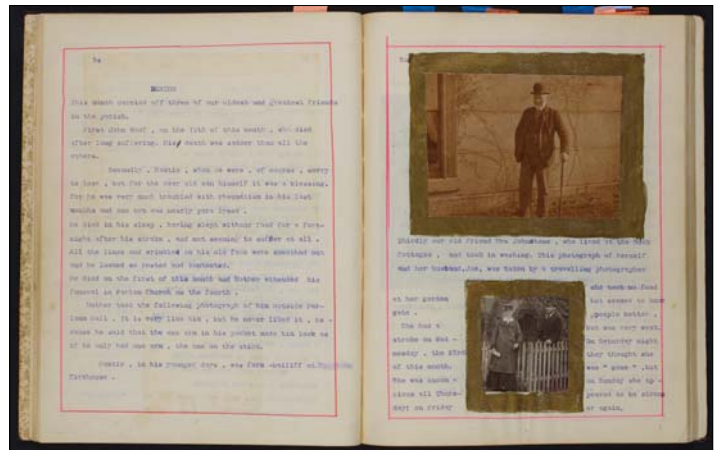 This month carried off three of our oldest and greatest friends
in the parish.
First John Goof , on the 17th of this month , who died
after long suffering. His death was sadder than all the
others.
Secondly , , whom we were , of course , sorry
to lose , but for the dear old man himself it was a blessing.
For he was very much troubled with rheumatism in his last
months and one arm was nearly para lysed .
He died in his sleep , having slept without food for a fort-
night after his stroke , and not seeming to suffer at all .
All the lines and wrinkles on his old face were smoothed out
and he looked so rested and contented.
He died on the first of this month and Mother attended his
funeral at Church on the fourth .
Mother took the following photograph of him outside
Hall . It is very like him , but he never liked it , be -
cause he said that the one arm in his pocket made him look as
if he only had one arm , the one on the stick.
, in his younger days , was farm -bailiff at
thirdly our old friend Mrs Johnstone , who lived at the
Cottages , and took in washing. This photograph of herself
and her husband, Joe, was taken by a travelling photographer
at her garden
gate .
She had a
stroke on Wed -
nesday , the
of this month.
She was uncon -
cious all Thurs-
day; on Friday
she took no food
but seemed to know
,people better ,
but was very weak.
On Saturday night
they thought she
was " gone " .but
on Sunday she ap -
peared to be strong
er again.